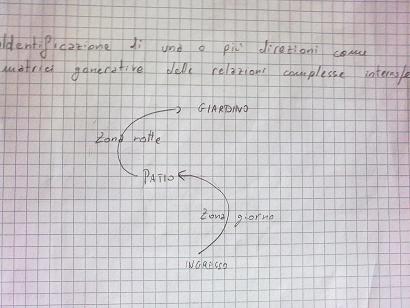 identificazione di una o più direzioni come
matrici generative delle relazioni complesse
GIARDINO
Zona notte
PATIO
Zona giorno
INGRESSO